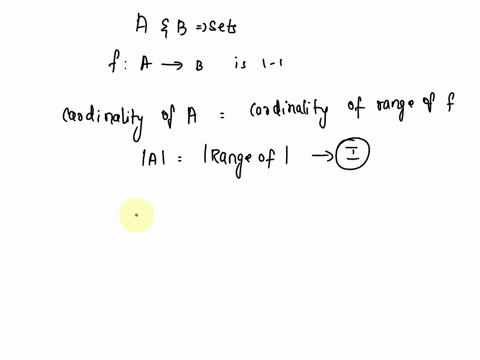 A & B ⇒ sets
f : A → B is 1-1
Cardinality of A = Cordinality of range of f
|A| = |Range of| → I